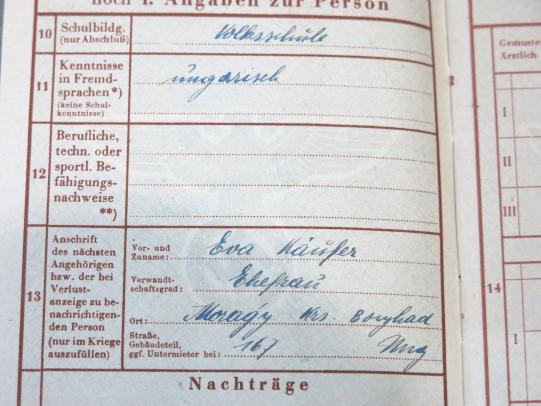 noch I. Angaben zur Person
10 Schulbildg. (nur Abschluß) Volksschule
11 Kenntnisse in Fremd-
sprachen *)
(keine Schul-
kenntnisse)
ungarisch
12 Berufliche,
techn. oder
sportl. Be-
fähigungs-
nachweise
**)
13 Anschrift
des nächsten
Angehörigen
bzw. der bei
Verlust-
anzeige zu be-
nachrichtigen-
den Person
(nur im Kriege
auszufüllen)
Vor- und
Zuname: Eva Käufer
Verwandt-
schaftsgrad: Ehefrau
Ort: Moragy Krs. Bonyhad
Straße,
Gebäudeteil,
ggf. Untermieter bei: 167 Ung
Nachträge
Gemuster
Ärztlich
I
II
III
14
I